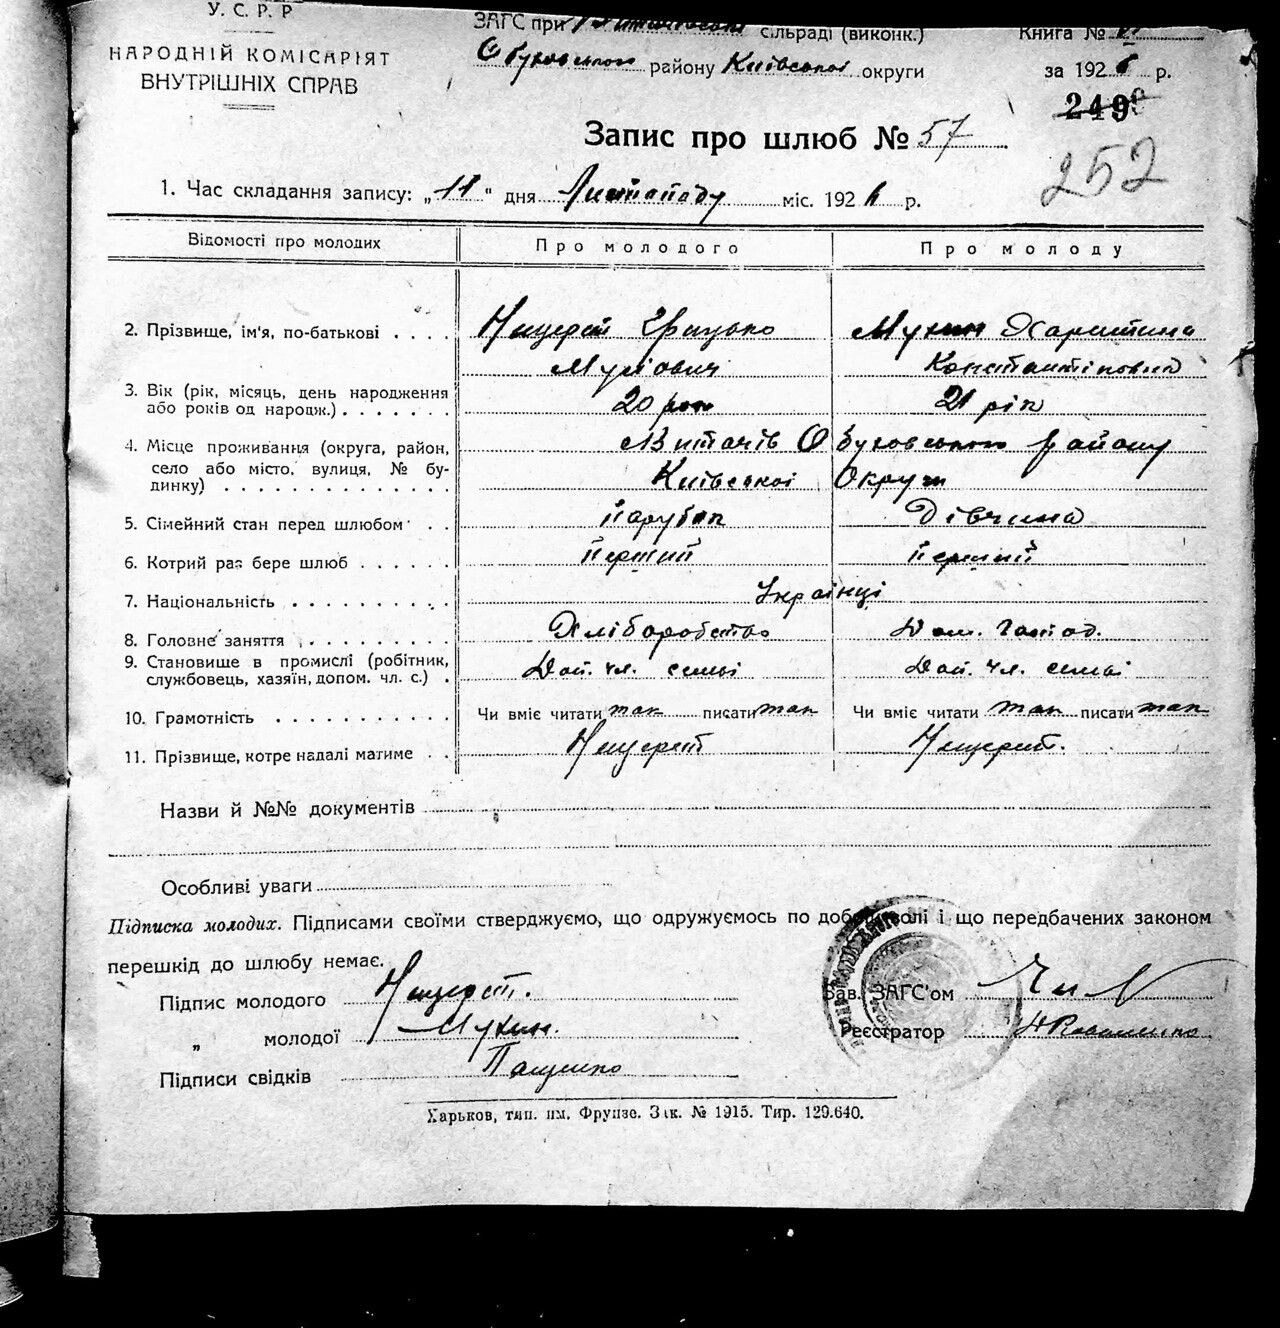 У. С. Р. Р
НАРОДНІЙ КОМІСАРІЯТ
ВНУТРІШНІХ СПРАВ
ЗАГС при сільраді (виконк.)
Обуховського району Київської округи
Книга №
за 1926 р.
249
252
Запис про шлюб № 57
1. Час складання запису: „11" дня Листопаду міс. 1926 р.
Відомості про молодих Про молодого Про молоду
2. Прізвище, ім'я, по-батькові . . . . Нищерет Грицько Мухин Харитина
Константіновна
3. Вік (рік, місяць, день народження
або років од народж.) . . . . . . . 20 рок 21 рік
4. Місце проживання (округа, район, Витачів Обуховського району
село або місто, вулиця, № бу-
динку) . . . . . . . . . . . . . . Київської Округи
5. Сімейний стан перед шлюбом . . Парубок Дівчина
6. Котрий раз бере шлюб . . . . . . Перший Перший
7. Національність . . . . . . . . . . Українці
8. Головне заняття . . . . . . . . . Хліборобство Дом. Господ.
9. Становище в промислі (робітник,
службовець, хазяїн, допом. чл. с.) . Доп. чл. семьі Доп. чл. семьі
10. Грамотність . . . . . . . . . . . Чи вміє читати так писати так Чи вміє читати так писати так
11. Прізвище, котре надалі матиме . . Нищерет Нищерет.
Назви й №№ документів
Особливі уваги
Підписка молодих. Підписами своїми стверджуємо, що одружуємось по добрій волі і що передбачених законом
перешкід до шлюбу немає.
Підпис молодого Нищерет.
„ молодої Мухин.
Підписи свідків Пащенко
Зав. ЗАГС'ом
Реєстратор
Харьков, тип. им. Фрунзе. Зак. № 1915. Тир. 129.640.